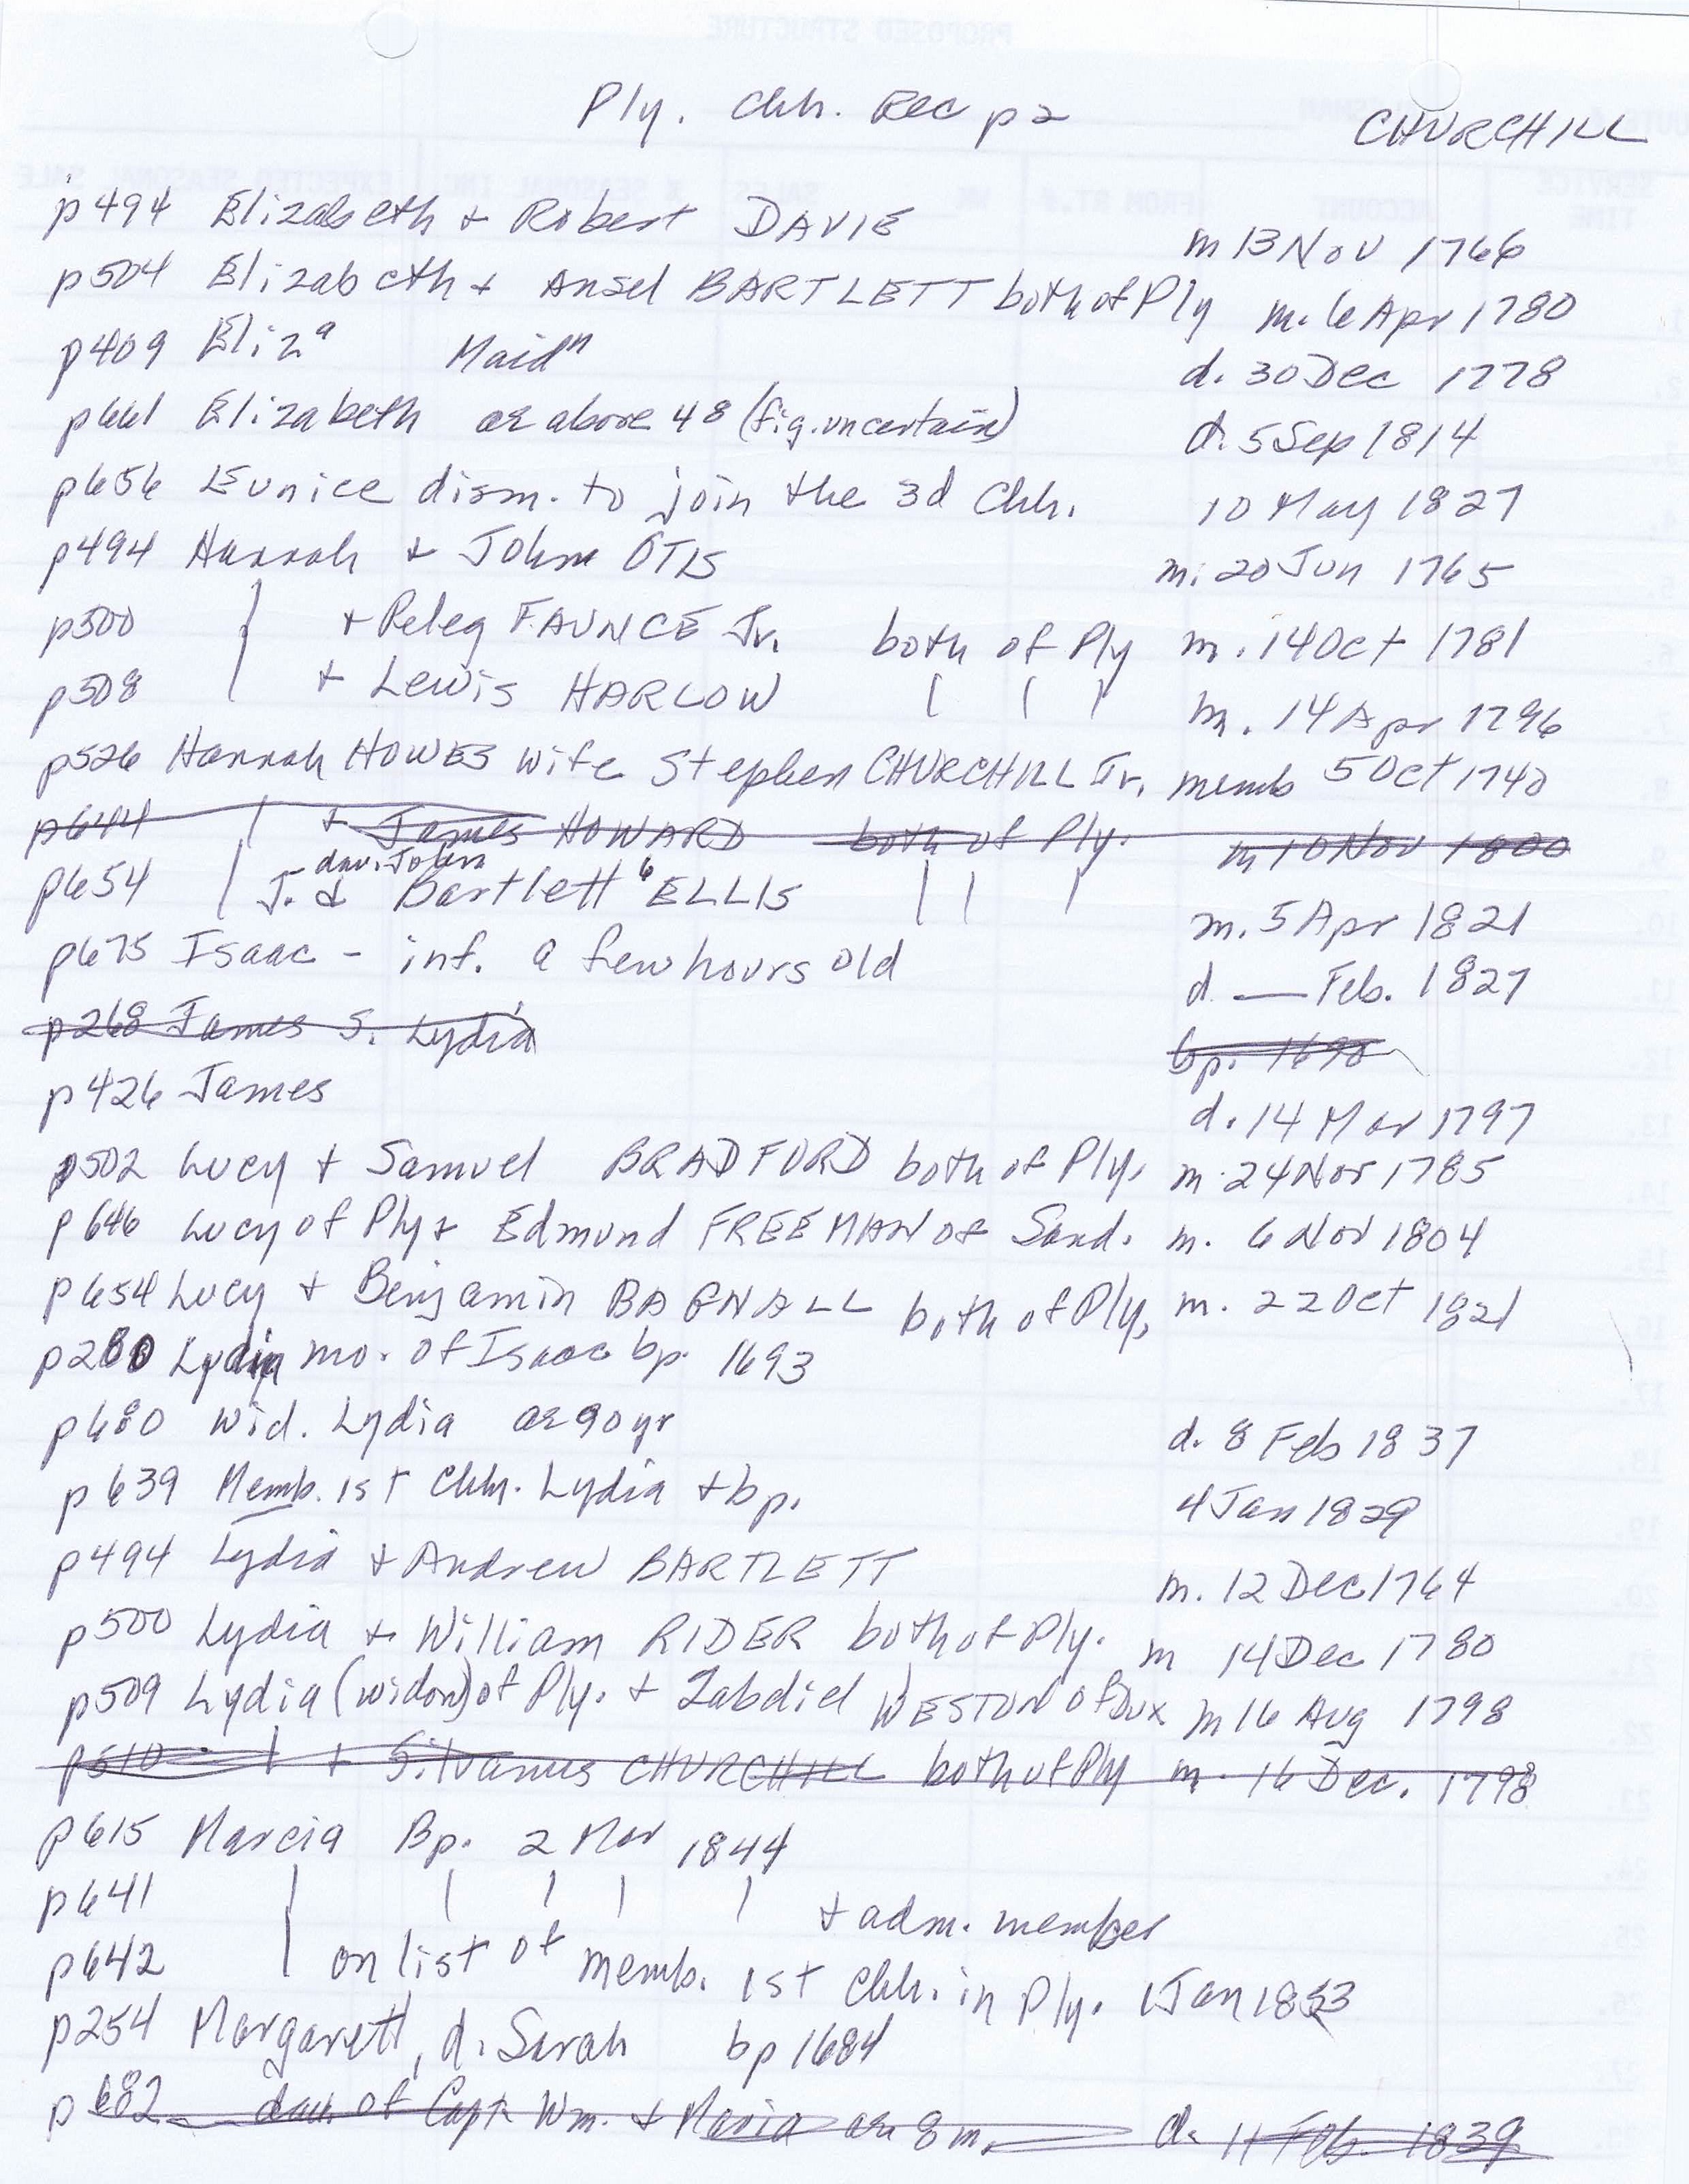 Ply. Chh. Rec p2
CHURCHILL
p494 Elizabeth + Robert DAVIE m 13 Nov 1766
p504 Elizabeth + Ansel BARTLETT both of Ply m. 6 Apr 1780
p409 Eliza Maidn d. 30 Dec 1778
p661 Elizabeth ae above 48 (fig. uncertain) d. 5 Sep 1814
p656 Eunice dism. to join the 3d Chh. 10 May 1827
p494 Hannah + John OTIS m. 20 Jun 1765
p500 | + Peleg FAUNCE Jr. both of Ply m. 14 Oct 1781
p508 | + Lewis HARLOW | | | m. 14 Apr 1796
p526 Hannah HOWES wife Stephen CHURCHILL Jr. memb 5 Oct 1740
p644 | + James HOWARD both of Ply. m 10 Nov 1800
dau. John
p654 | J. & Bartlett ELLIS | | | m. 5 Apr 1821
p675 Isaac - inf. a few hours old d — Feb. 1827
p268 James S. Lydia bp. 1690
p426 James d. 14 Mar 1797
p502 Lucy + Samuel BRADFORD both of Ply. m. 24 Nov 1785
p646 Lucy of Ply + Edmund FREEMAN of Sand. m. 6 Nov 1804
p654 Lucy + Benjamin BAGNALL both of Ply, m. 22 Oct 1821
p280 Lydia mo. of Isaac bp. 1693
p680 wid. Lydia ae 90 yr d. 8 Feb 1837
p639 Memb. 1st Chh. Lydia + bp. 4 Jan 1829
p494 Lydia + Andrew BARTLETT m. 12 Dec 1764
p500 Lydia + William RIDER both of Ply. m 14 Dec 1780
p509 Lydia (widow) of Ply. + Zabdiel WESTON of Dux m 16 Aug 1798
p510 | + Silvanus CHURCHILL both of Ply m. 16 Dec. 1798
p615 Marcia Bp. 2 Mar 1844
p641 | | | | | + adm. member
p642 | on list of memb. 1st Chh. in Ply. 1 Jan 1853
p254 Margarett, d. Sarah bp 1684
p682 dau. of Capt Wm. + Maria ae 8 m. d. 11 Feb. 1839